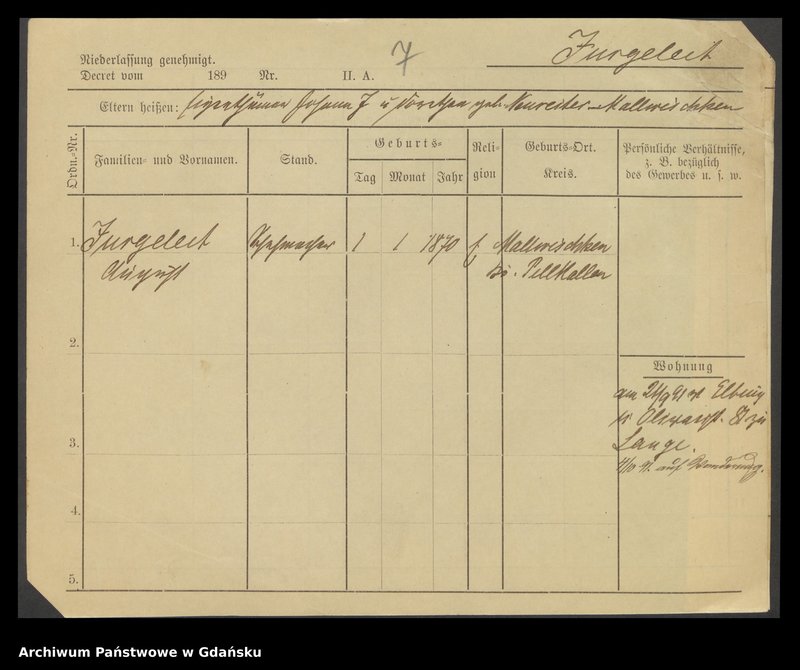 7
Jurgeleit
Niederlassung genehmigt.
Decret vom 189 Nr. II. A.
Eltern heißen: Eigenthümer Johann J u Dorothea geb. Neureiter Mallwischken
Ordn.-Nr.
Familien- und Vornamen.
Stand.
Geburts-
Tag Monat Jahr
Reli-
gion
Geburts-Ort.
Kreis.
Persönliche Verhältnisse,
z. B. bezüglich
des Gewerbes u. s. w.
1. Jurgeleit 1 1 1870 Mallwischken
August Pillkallen
2.
Wohnung
am Elbing
zu
3. Lange.
auf Wanderung.
4.
5.
Archiwum Państwowe w Gdańsku